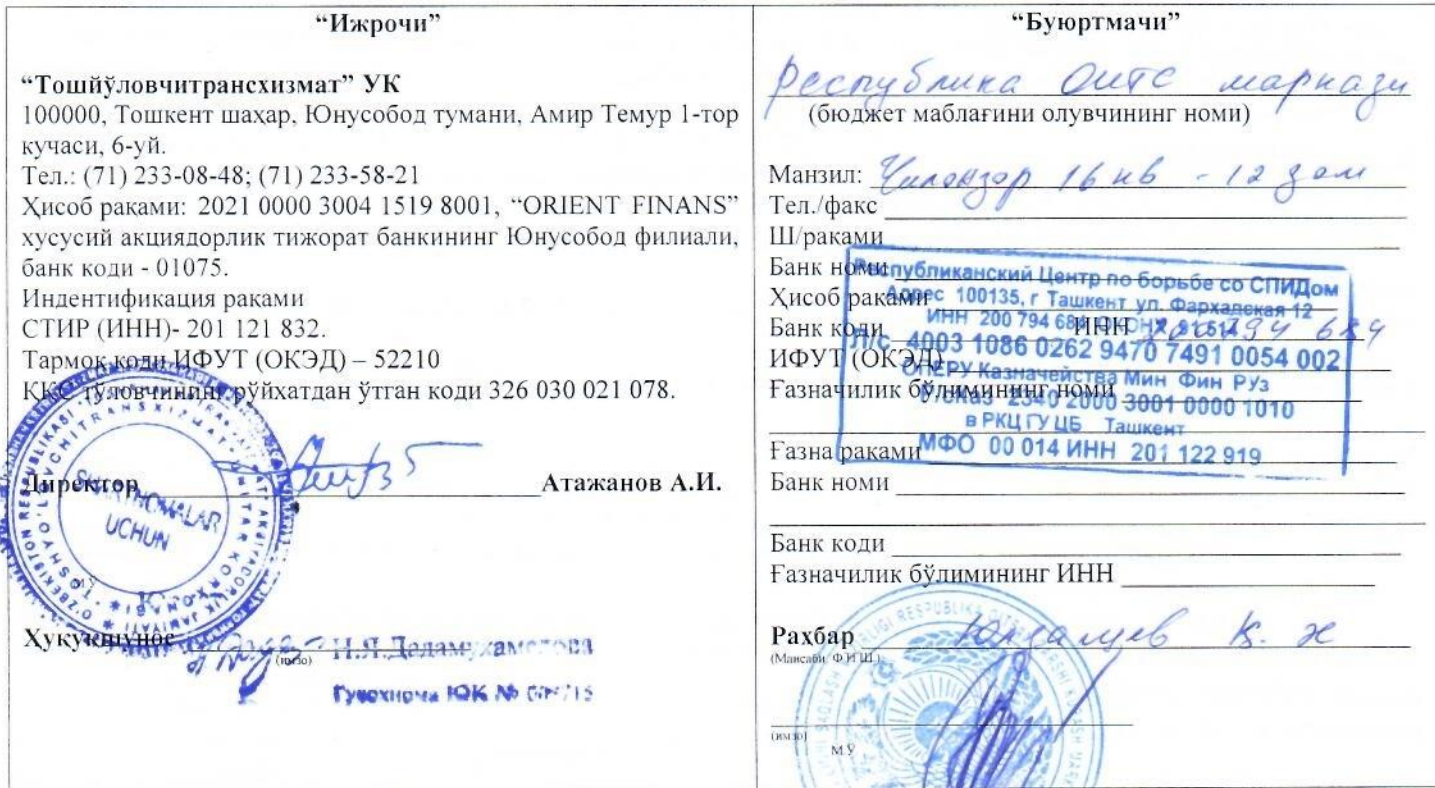 “Ижрочи”
“Тошйўловчитрансхизмат” УК
100000, Тошкент шаҳар, Юнусобод тумани, Амир Темур 1-тор
кучаси, 6-уй.
Тел.: (71) 233-08-48; (71) 233-58-21
Ҳисоб рақами: 2021 0000 3004 1519 8001, “ORIENT FINANS”
хусусий акциядорлик тижорат банкининг Юнусобод филиали,
банк коди - 01075.
Индентификация рақами
СТИР (ИНН)- 201 121 832.
Тармоқ коди ИФУТ (ОКЭД) – 52210
ҚҚС тўловчининг рўйхатдан ўтган коди 326 030 021 078.
Директор Атажанов А.И.
SHARTNOMALAR
UCHUN
Ҳуқуқшунос
(имзо) Н.Я.Дадамухамедова
Гувохнома ЮК №
“Буюртмачи”
Республика ОИТС маркази
(бюджет маблағини олувчининг номи)
Манзил: Чилонзор 16 кв - 12 
Тел./факс
Ш/рақами
Банк номи
Ҳисоб рақами
Банк коди ИНН 200794 684
ИФУТ (ОКЭД)
Ғазначилик бўлимининг номи
Ғазна рақами
Банк номи
Банк коди
Ғазначилик бўлимининг ИНН
Республиканский Центр по борьбе со СПИДом
Адрес 100135, г Ташкент ул. Фархадская 12
ИНН 200 794 684 ОКОНХ 91514
Л/с 4003 1086 0262 9470 7491 0054 002
ОПЕРУ Казначейства Мин Фин РУз
2340 2000 3001 0000 1010
в РКЦ ГУ ЦБ Ташкент
МФО 00 014 ИНН 201 122 919
Раҳбар
(Мансаби, Ф.И.Ш.)
(имзо)
М.Ў